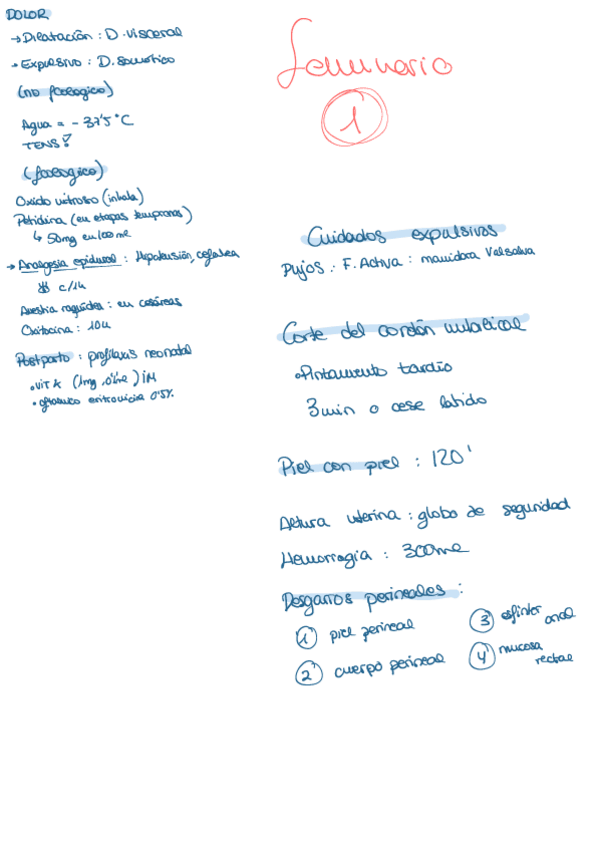 DOLOR
→ Dilatación : D. visceral
→ Expulsivo : D. somático
(no fcologico)
Agua = - 37'5 °C
TENS
(fcologico)
Oxido nitroso (inhala)
Petidina (en etapas tempranas)
↳ 50mg en 100ml
→ Analgesia epidural : Hipotensión, cefalea
c/1h
Anestia raquidea : en cesáreas
Oxitocina : 10u
Postparto : profilaxis neonatal
• vit K (1mg, 0'1ml) IM
• oftalmico eritromicina 0'5%
Seminario
1
Cuidados expulsivos
Pujos : F. Activa : maniobra Valsalva
Corte del cordón umbilical
• Pinzamiento tardío
3min o cese latido
Piel con piel : 120'
Altura uterina : globo de seguridad
Hemorragia : 300ml
Desgarros perineales :
1 piel perineal
2 cuerpo perineal
3 esfinter anal
4 mucosa rectal